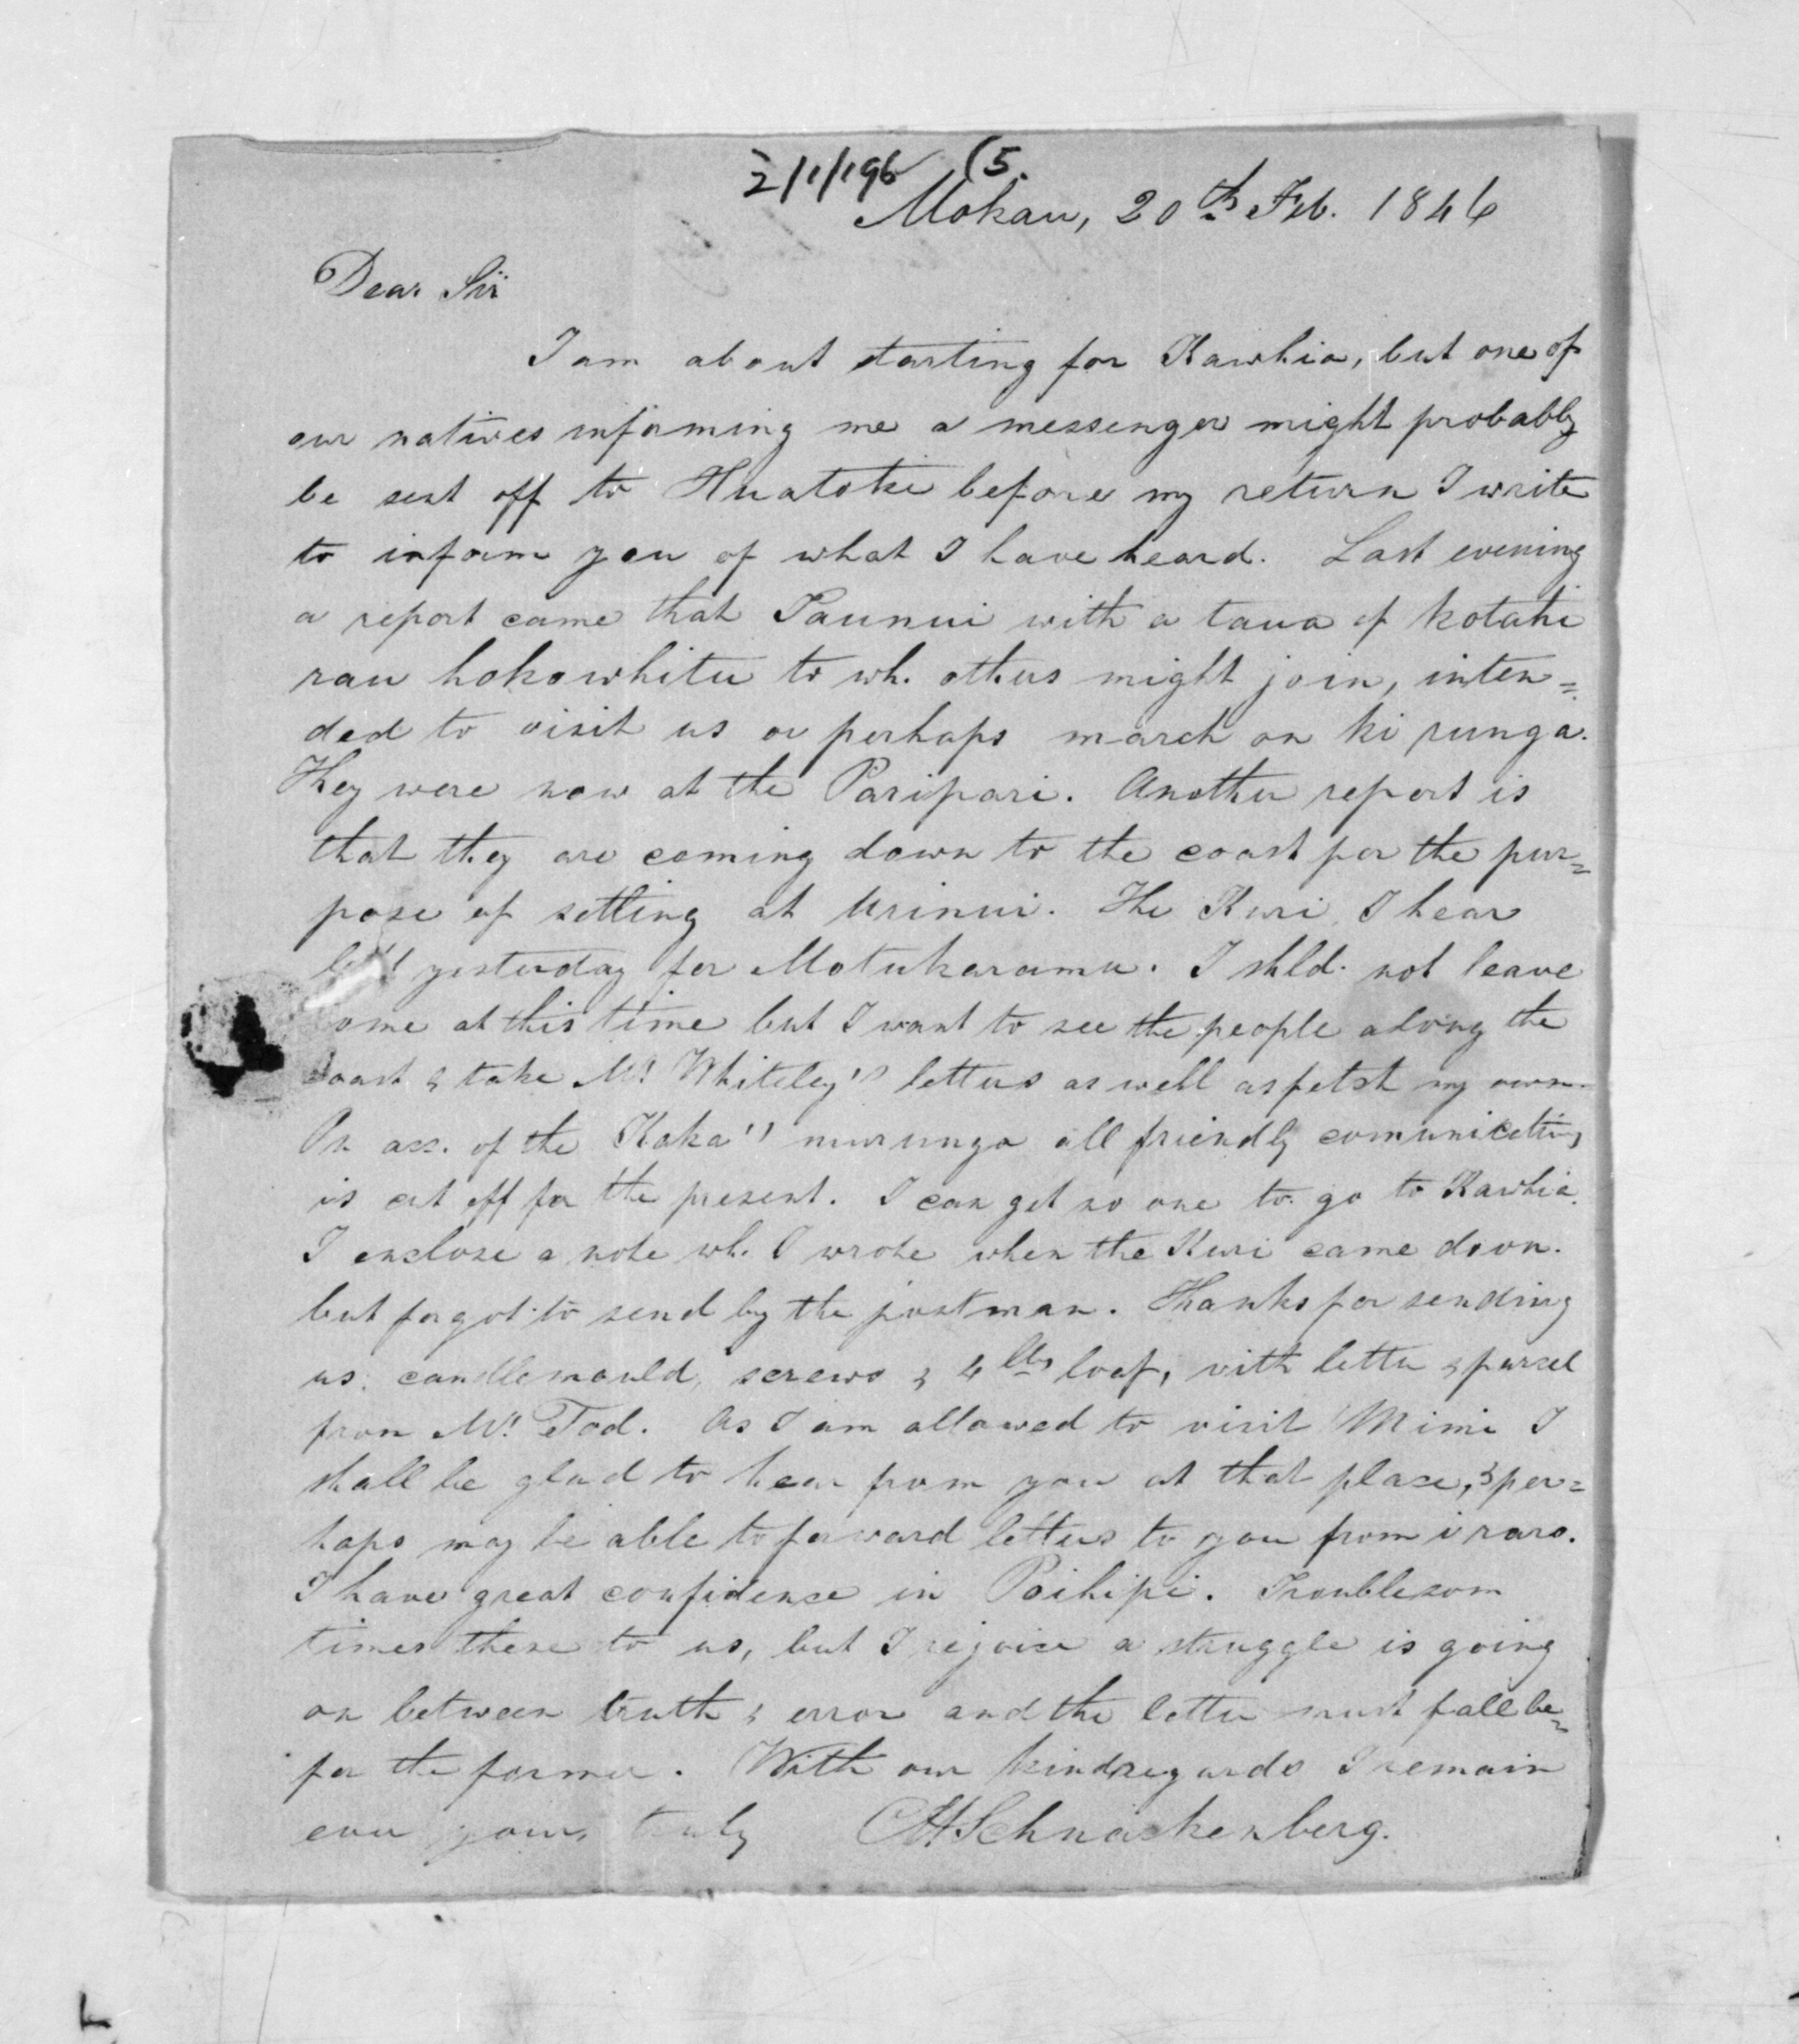 2/1/196 (5.
Mokau, 20th Feb. 1846
Dear Sir
I am about starting for Kawhia, but one of
our natives informing me a messenger might probably
be sent off to Huatoki before my return I write
to inform you of what I have heard. Last evening
a report came that Taunui with a taua of kotahi
rau hokowhitu to wh. others might join, inten=
ded to visit us or perhaps march on ki runga.
They were now at the Paripari. Another report is
that they are coming down to the coast for the pur=
pose of setting at Urinui. The Kuri, I hear
left yesterday for Motukaramu. I shld. not leave
ome at this time but I want to see the people along the
Coast & take Mr. Whiteley's letters as well as fetch my own.
On acc. of the Kaka's murunga all friendly comunication
is cut off for the present. I can get no one to go to Kawhia.
I enclose a note wh. I wrote when the Kuri came down.
but forgot to send by the postman. Thanks for sending
us candlemould, screws & 4 lbs loaf, with letter & parcel
from Mr. Tod. As I am allowed to visit Mimi I
shall be glad to hear from you at that place, & per=
haps may be able to forward letters to you from i raro.
I have great confidence in Poihipi. Troublesom
times these to us, but I rejoice a struggle is going
on between truth & error and the latter must fall be=
for the former. With our kind regards I remain
ever yours truly CHSchnackenberg.